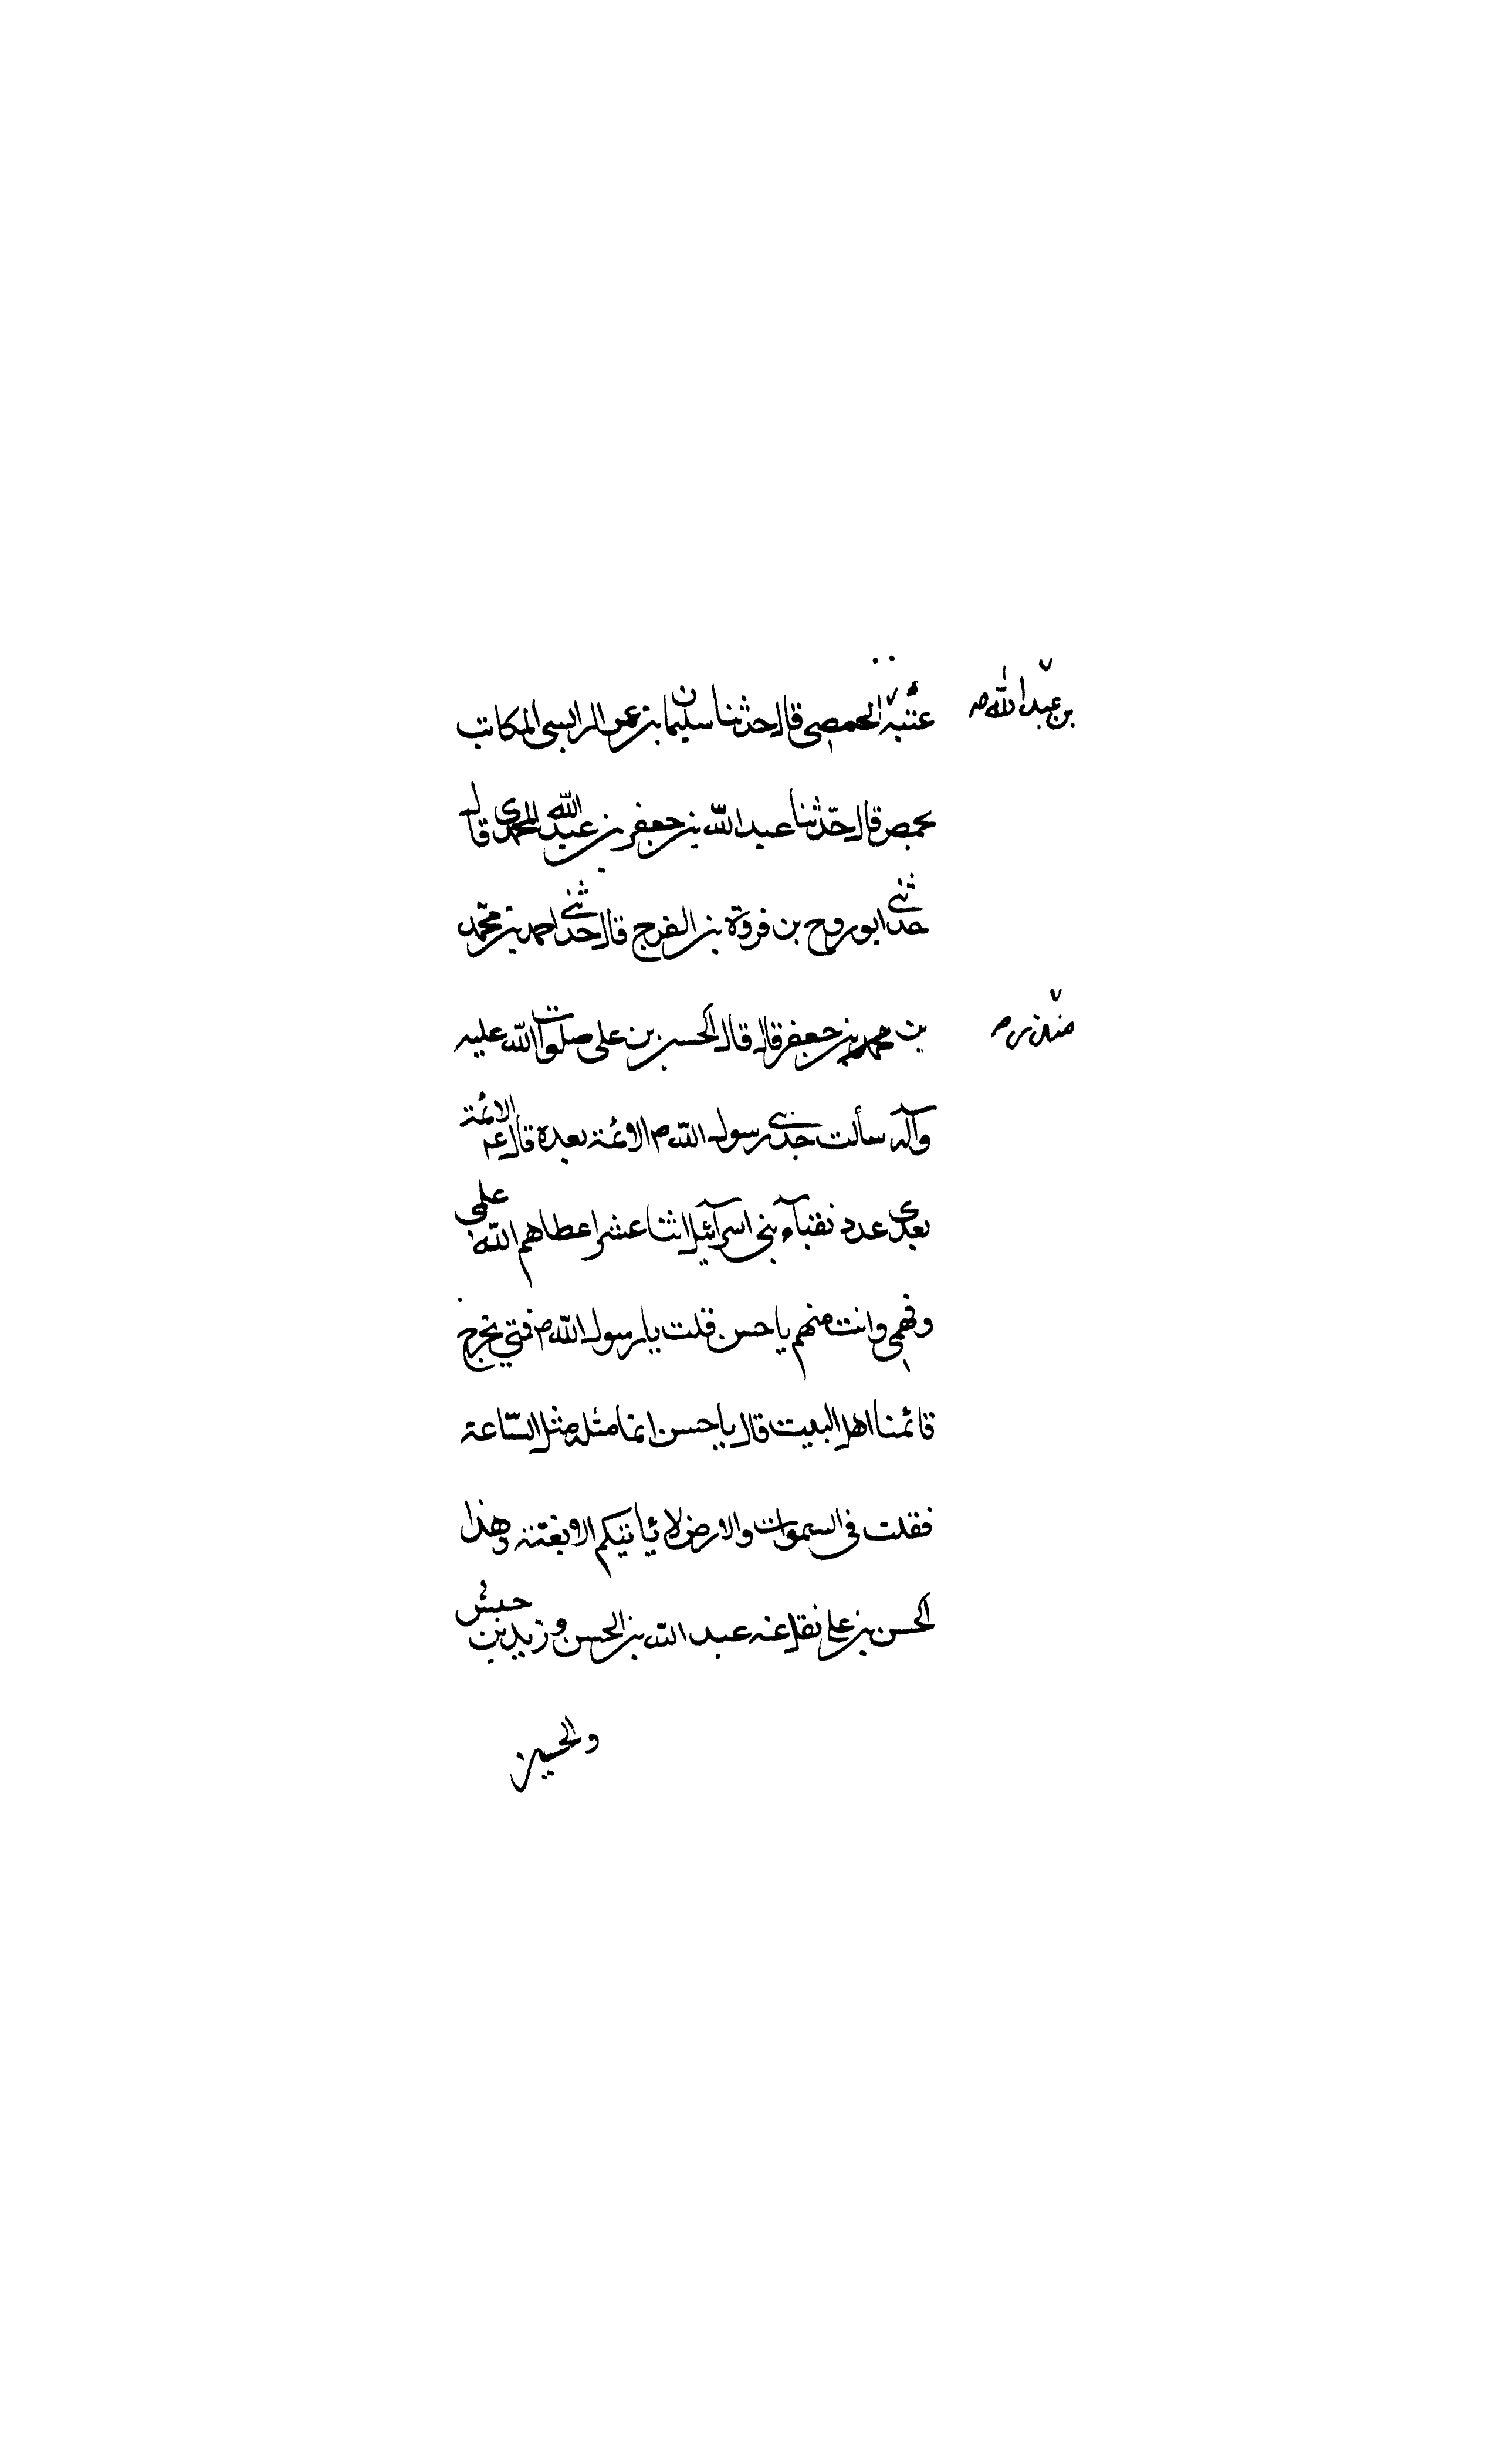 عتبة الحمصى قال حدثنا سليمان بن عمر الراسبى المكاتب
بن عبد الله صح
بحمص قال حدّثنا عبد اللّه بن جعفر بن عبد اللّه المحمدى قال
حدثنى ابو روح بن فروة بن الفرج قال حدثنى احمد بن محمّد
بن محمد بن جعفر قال قال الحسن بن على صلوات اللّه عليه
منذر صح
وآله سألت جدى رسول اللّه ص الائمة بعده قال ع الائمة
بعدى عدد نقباء بنى اسرآئيل اثنا عشر اعطاهم اللّه علمى
وفهمى وانت منهم يا حسن قلت يا رسول اللّه ص فمتى يخرج
قائمنا اهل البيت قال يا حسن انما مثله مثل السّاعة
فقلت فى السموات والارض لا يأتيكم الا بغتة وهذا
الحسن بن على نقل عنه عبد اللّه بن الحسن و زيد بن حبيش
والحسين